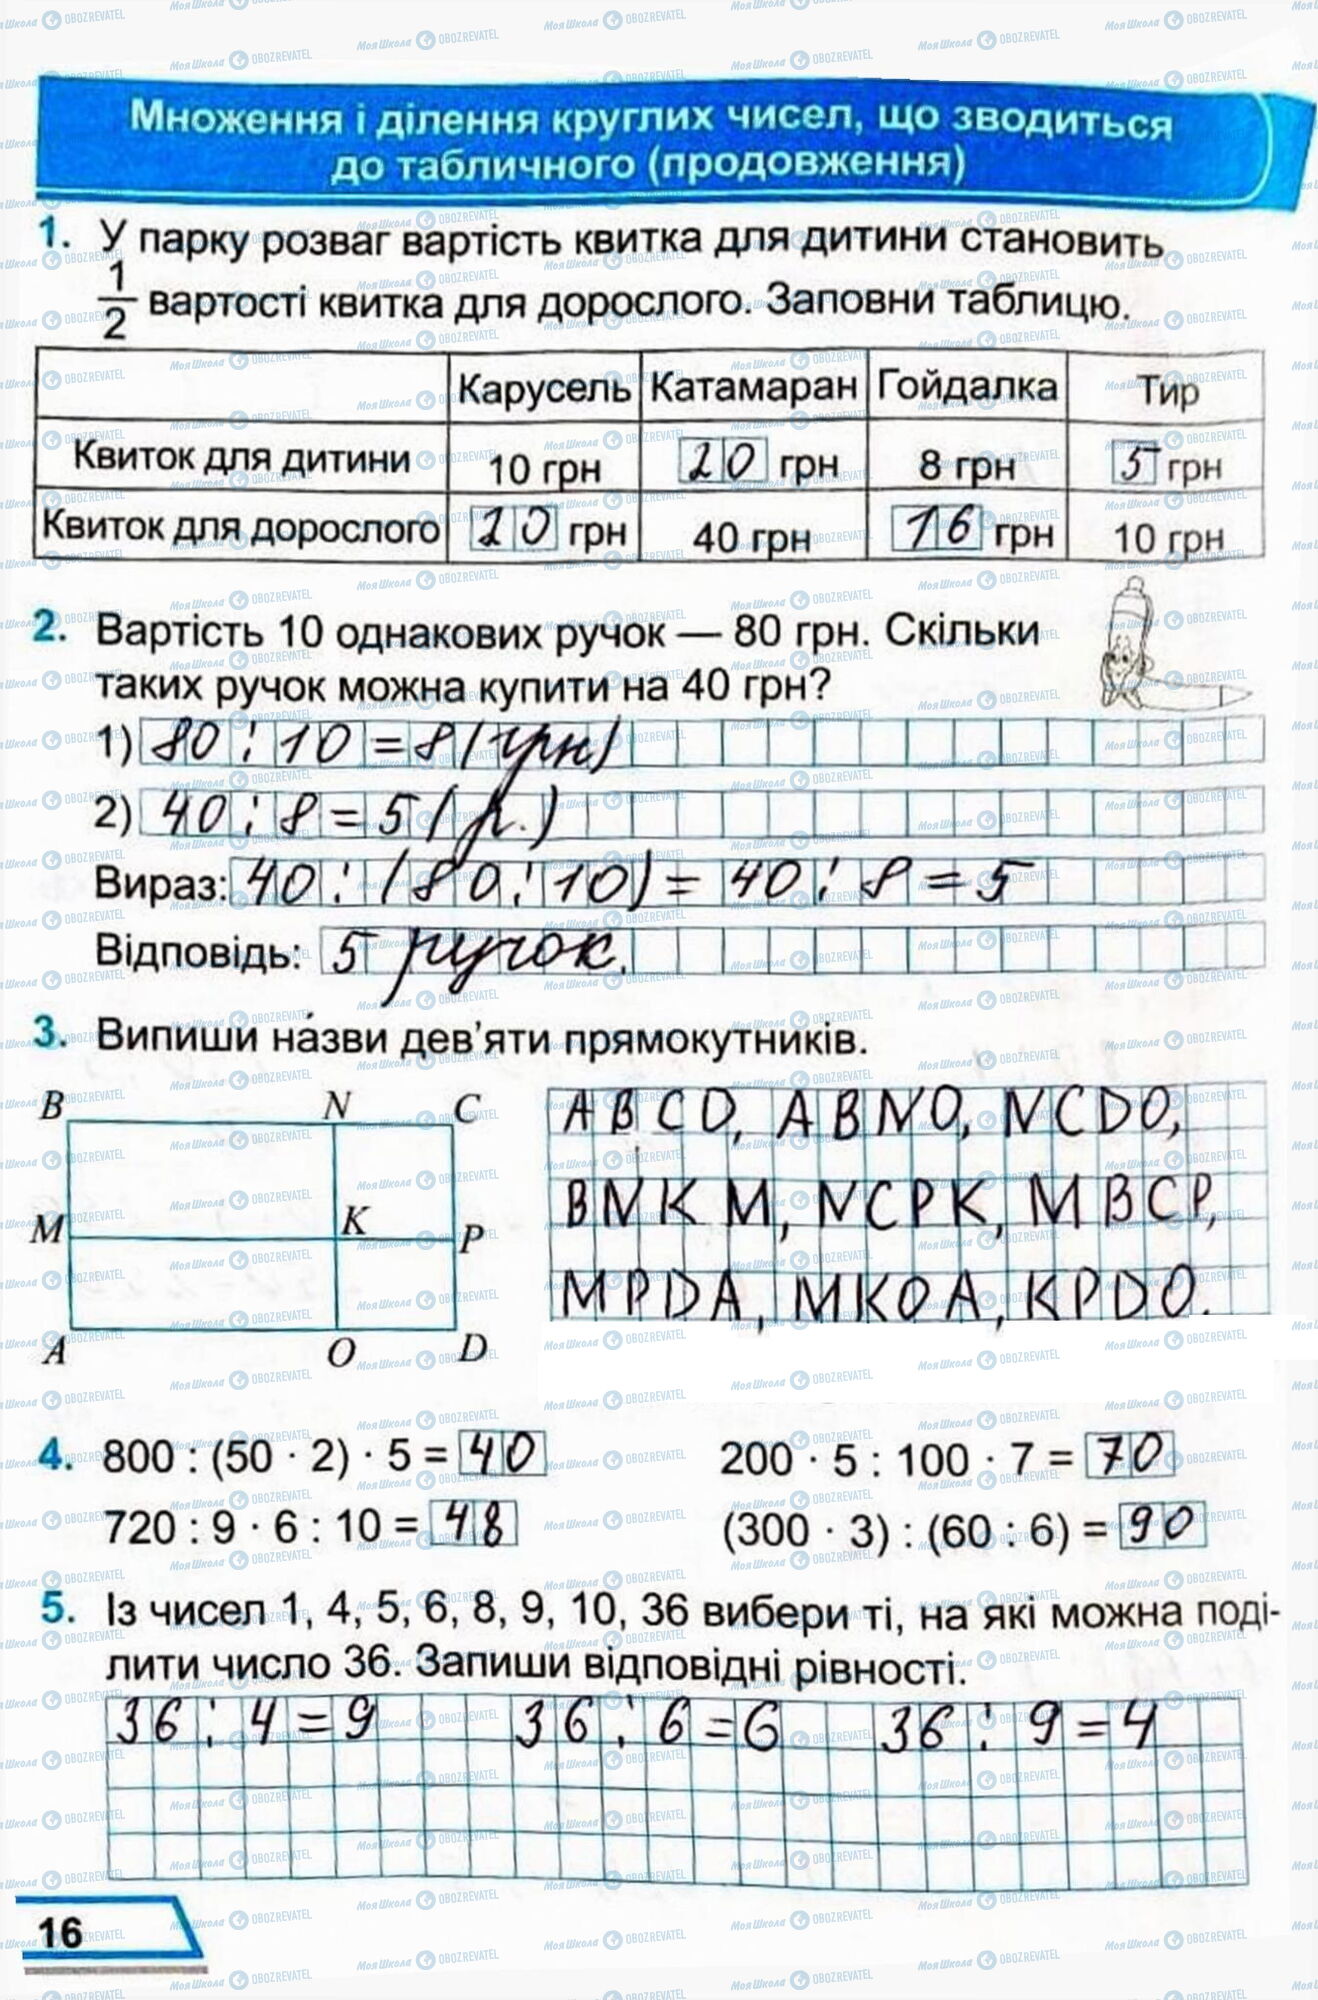 Множення і ділення круглих чисел, що зводиться
до табличного (продовження)
1. У парку розваг вартість квитка для дитини становить
1/2 вартості квитка для дорослого. Заповни таблицю.
Карусель Катамаран Гойдалка Тир
Квиток для дитини 10 грн 20 грн 8 грн 5 грн
Квиток для дорослого 20 грн 40 грн 16 грн 10 грн
2. Вартість 10 однакових ручок — 80 грн. Скільки
таких ручок можна купити на 40 грн?
1) 80 : 10 = 8 (грн)
2) 40 : 8 = 5 (р.)
Вираз: 40 : (80 : 10) = 40 : 8 = 5
Відповідь: 5 ручок.
3. Випиши на́зви дев'яти прямокутників.
B N C
M K P
A O D
ABCD, ABNO, NCDO,
BNKM, NCPK, MBCP,
MPDA, MKOA, KPDO.
4. 800 : (50 · 2) · 5 = 40 200 · 5 : 100 · 7 = 70
720 : 9 · 6 : 10 = 48 (300 · 3) : (60 : 6) = 90
5. Із чисел 1, 4, 5, 6, 8, 9, 10, 36 вибери ті, на які можна поді-
лити число 36. Запиши відповідні рівності.
36 : 4 = 9 36 : 6 = 6 36 : 9 = 4
16
МояШкола OBOZREVATEL